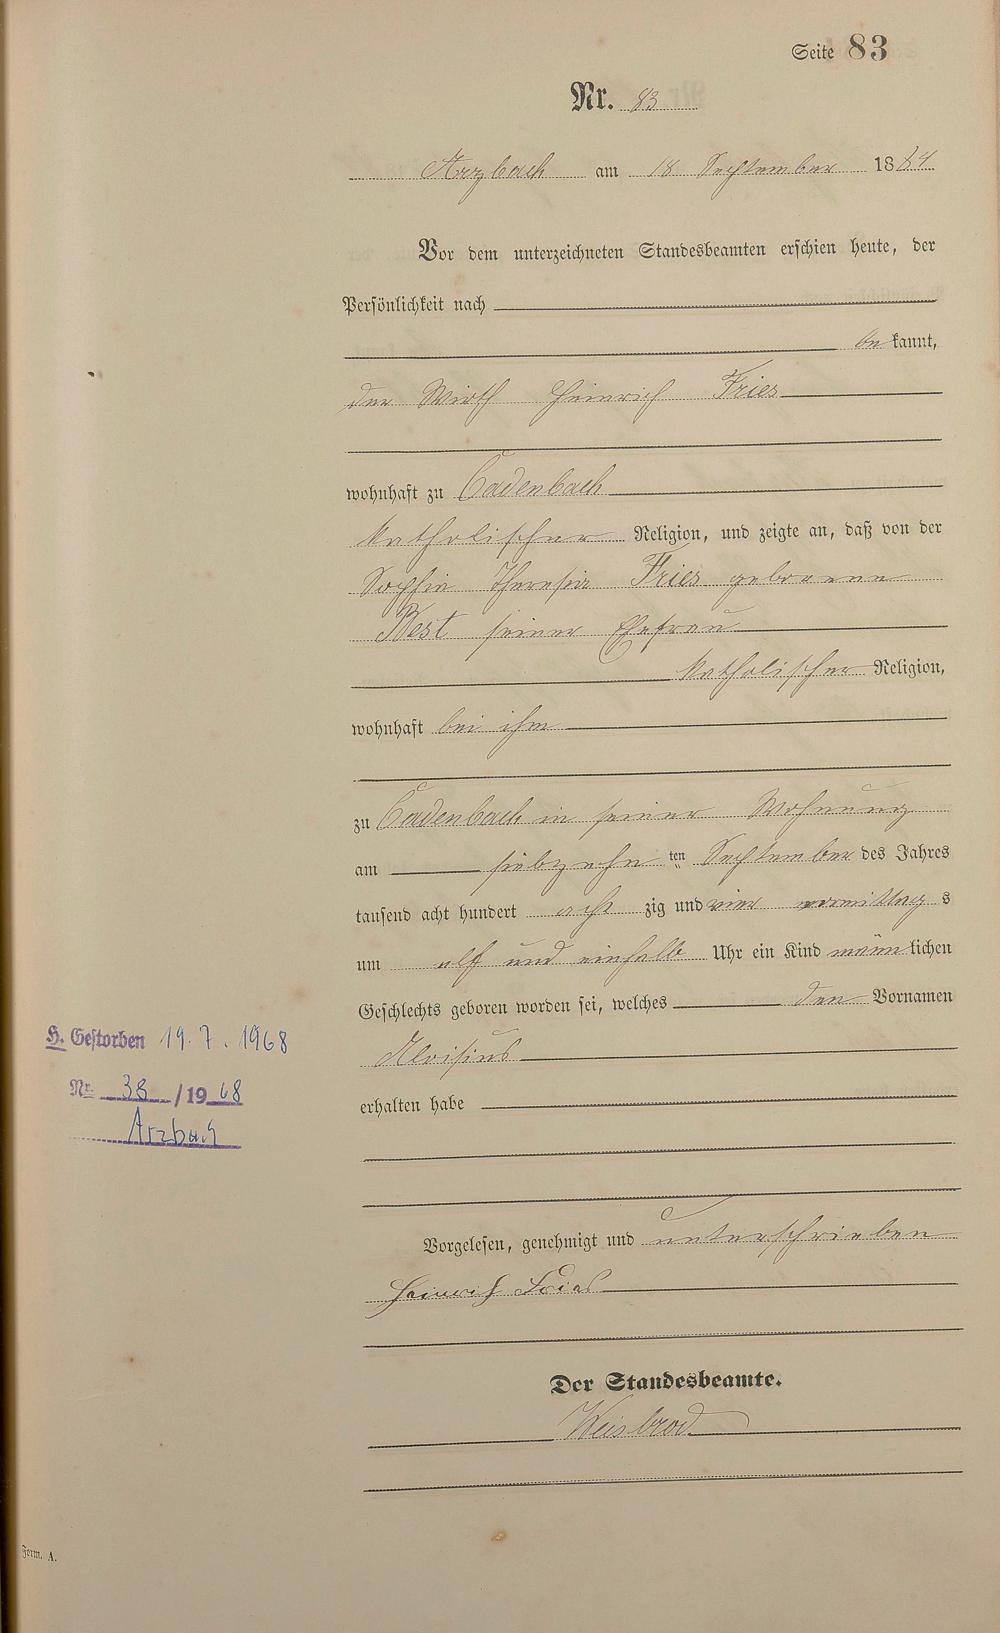 Seite 83
Nr. 83
Arzbach am 18 September 1884
Vor dem unterzeichneten Standesbeamten erschien heute, der
Persönlichkeit nach
bekannt,
der Wirth Heinrich Fries
wohnhaft zu Cadenbach
katholischer Religion, und zeigte an, daß von der
Sophie Theresia Fries geborene
Best seiner Ehefrau
katholischer Religion,
wohnhaft bei ihm
zu Cadenbach in seiner Wohnung
am siebzehn ten September des Jahres
tausend acht hundert acht zig und vier vormittag s
um elf und einhalb Uhr ein Kind männlichen
Geschlechts geboren worden sei, welches den Vornamen
Aloisius
erhalten habe
H. Gestorben 19.7.1968
Nr. 38/1968
Arzbach
Vorgelesen, genehmigt und unterschrieben
Heinrich Fries
Der Standesbeamte.
Weisbrod
Form. A.